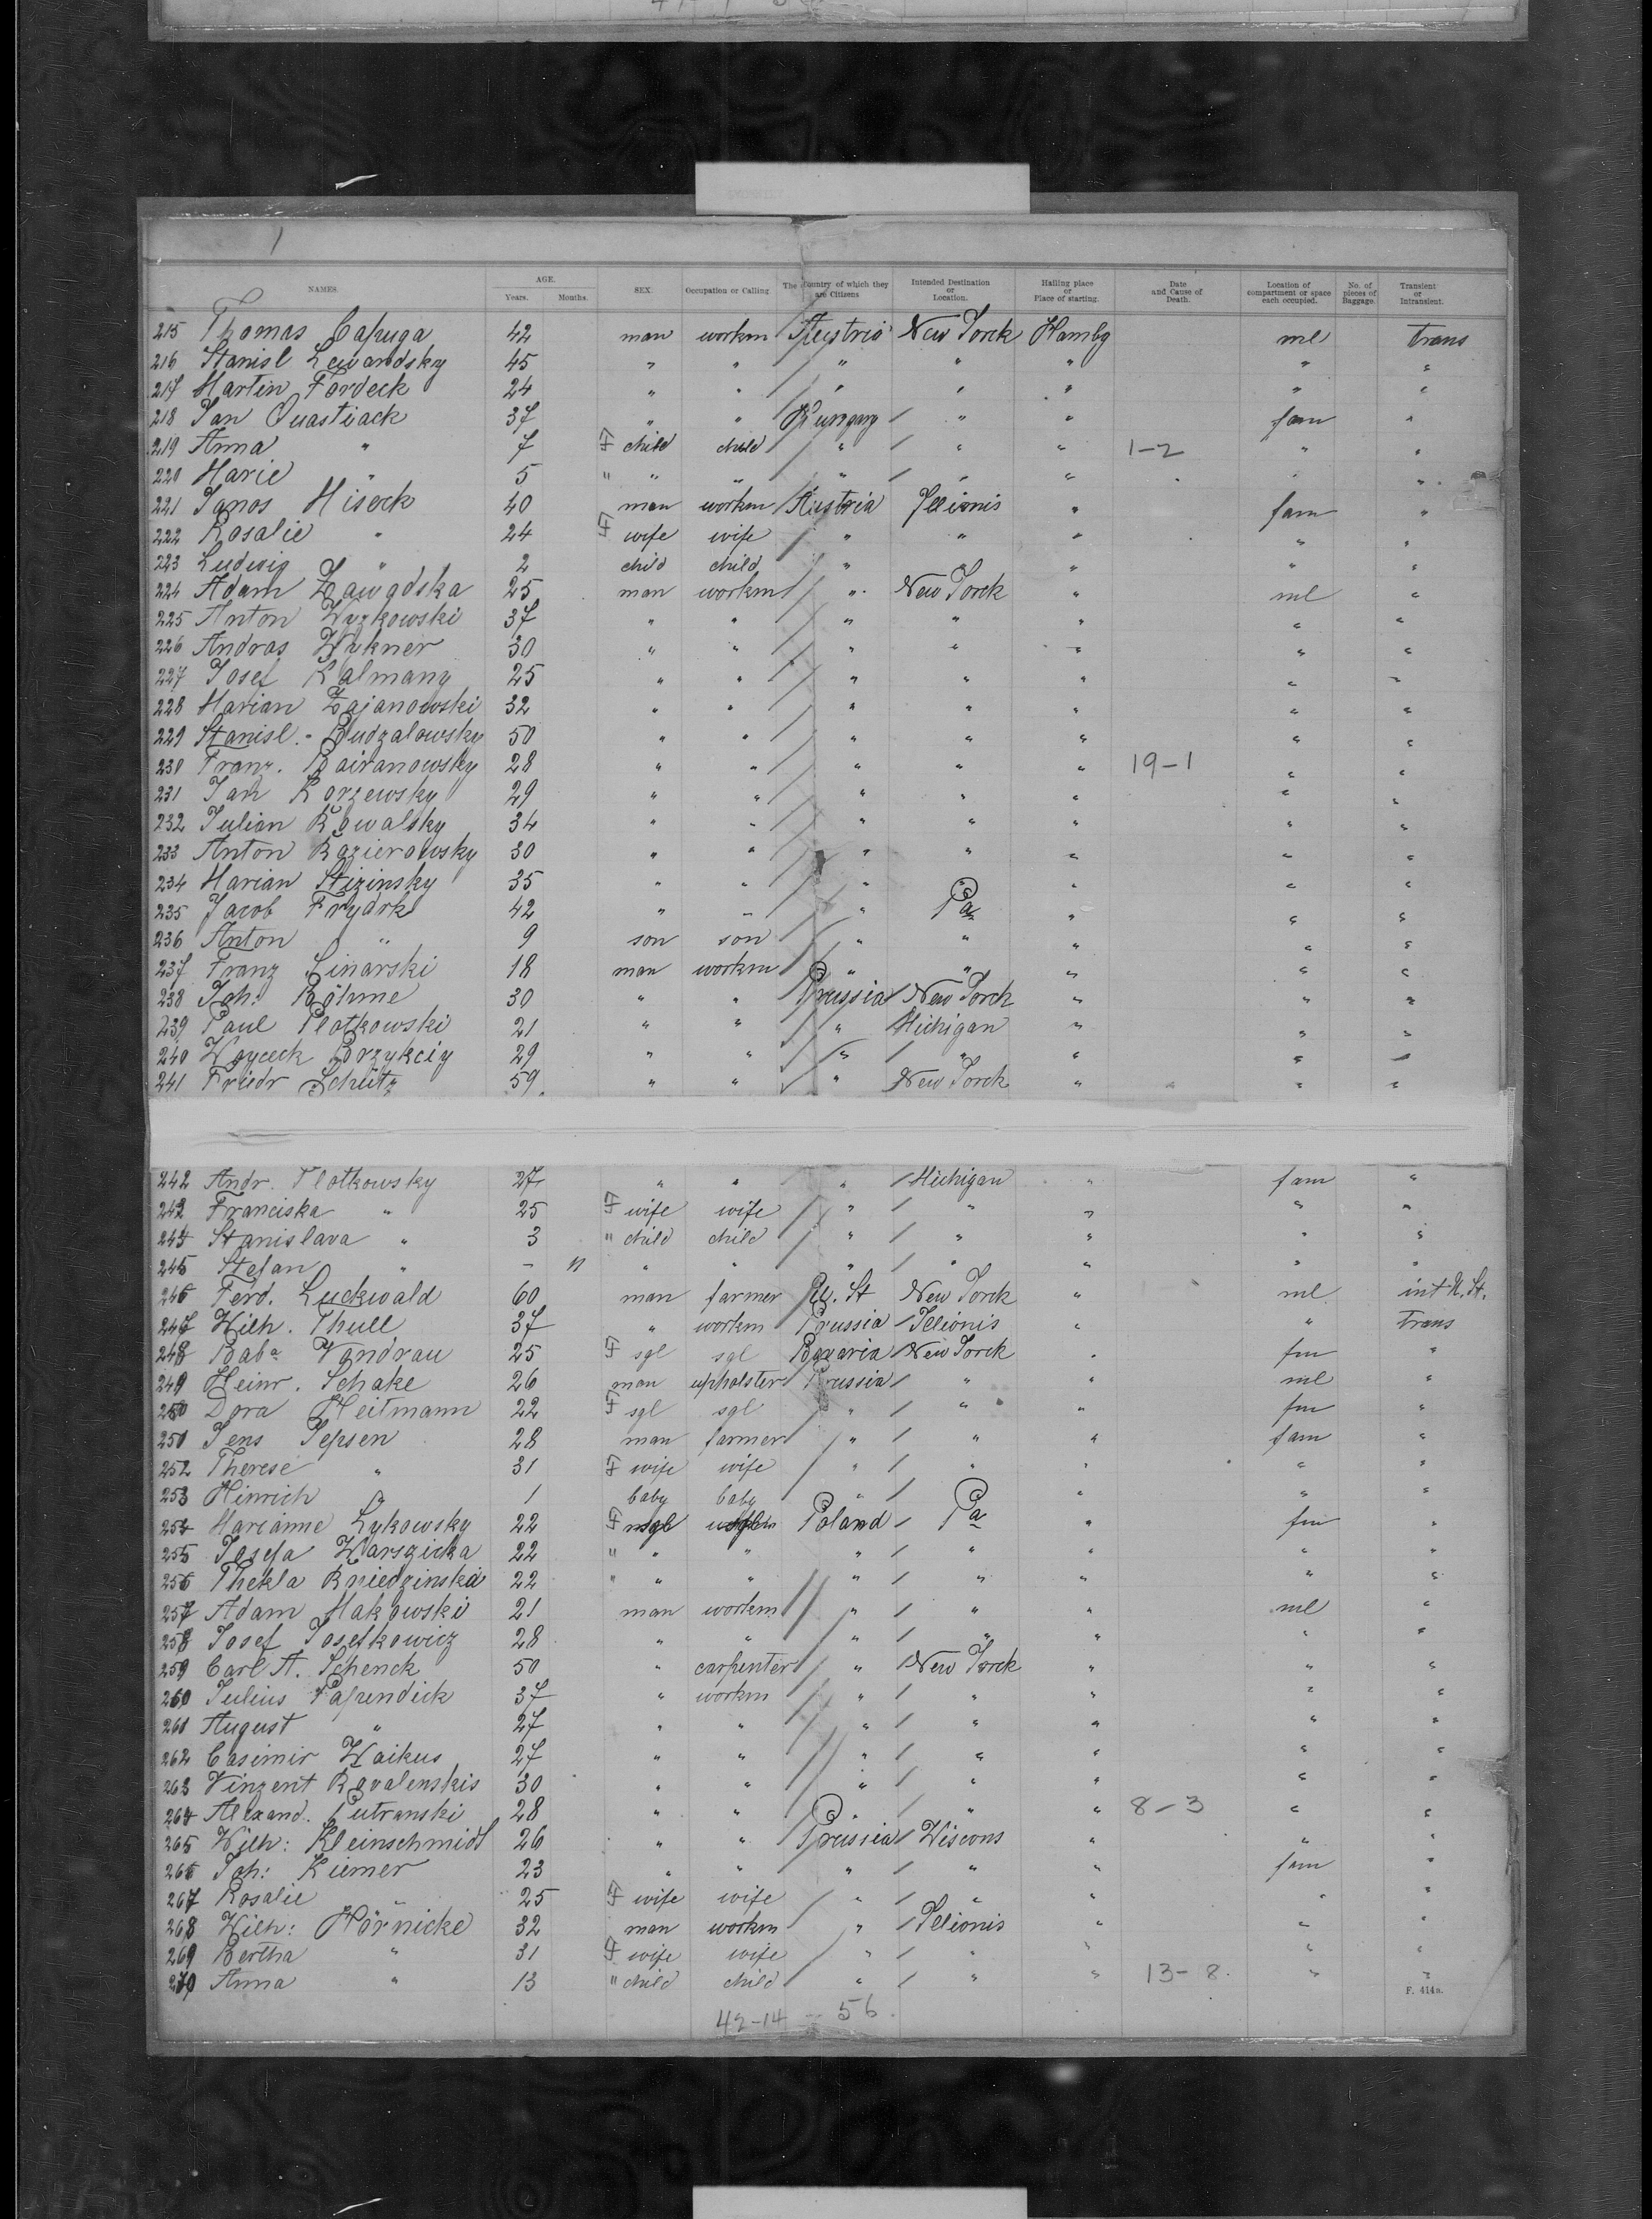 1
NAMES. AGE. Years. Months. SEX. Occupation or Calling The Country of which they are Citizens Intended Destination or Location. Hailing place or Place of starting. Date and Cause of Death. Location of compartment or space each occupied. No. of pieces of Baggage. Transient or Intransient.
215 Thomas Capuga 42 man workm Austria New Yorck Hambg ml trans
216 Stanisl Lewandsky 45 " " " " " " "
217 Martin Fordeck 24 " " " " " " "
218 Jan Quastiack 37 " " Hungary " " fam "
219 Anna " 7 F child child " " " 1-2 " "
220 Marie " 5 " " " " " " " "
221 Janos Miseck 40 man workm Austria Illionis " fam "
222 Rosalie " 24 F wife wife " " " " "
223 Ludwig " 2 child child " " " " "
224 Adam Zawadska 25 man workm " New Yorck " ml "
225 Anton Wyzkowski 37 " " " " " " "
226 Andras Wykner 30 " " " " " " "
227 Josef Kalmany 25 " " " " " " "
228 Marian Zajanowski 32 " " " " " " "
229 Stanisl. Budzalowsky 50 " " " " " " "
230 Franz. Bairanowsky 28 " " " " " 19-1 " "
231 Jan Korzewsky 29 " " " " " " "
232 Julian Kowalsky 34 " " " " " " "
233 Anton Kazierowsky 30 " " " " " " "
234 Marian Stizinsky 35 " " " " " " "
235 Jacob Frydrk 42 " " " Pa " " "
236 Anton " 9 son son " " " " "
237 Franz Linarski 18 man workm " " " " "
238 Joh: Böhme 30 " " Prussia New Yorck " " "
239 Paul Plotkowski 21 " " " Michigan " " "
240 Woyceck Brzykciy 29 " " " " " " "
241 Friedr Schütz 59 " " " New Yorck " " "
242 Andr. Plotkowsky 27 " " " Michigan " fam "
243 Franciska " 25 F wife wife " " " " "
244 Stanislava " 3 " child child " " " " "
245 Stefan " - 11 " " " " " " "
246 Ferd. Luckwald 60 man farmer U. St New Yorck " ml int U. St.
247 Wilh. Thull 37 " workm Prussia Illionis " " Trans
248 Baba Vandrau 25 F sgl sgl Bavaria New Yorck " fm "
249 Heinr. Schake 26 man upholster Prussia " " ml "
250 Dora Heitmann 22 F sgl sgl " " " fm "
251 Jens Jepsen 28 man farmer " " " fam "
252 Therese " 31 F wife wife " " " " "
253 Hinrich " 1 baby baby " " " " "
254 Marianne Lykowsky 22 F sgl sgl Poland Pa " fm "
255 Josefa Warszicka 22 " " " " " " " "
256 Thekla Kniedzinska 22 " " " " " " " "
257 Adam Makowski 21 man workm " " " ml "
258 Josef Josefkowicz 28 " " " " " " "
259 Carl A. Schenck 50 " carpenter " New Yorck " " "
260 Julius Papendick 37 " workm " " " " "
261 August " 27 " " " " " " "
262 Casimir Waikus 27 " " " " " " "
263 Vinzent Kovalenskis 30 " " " " " " "
264 Alexand. Putranski 28 " " " " " 8-3 " "
265 Wilh: Kleinschmidt 26 " " Prussia Wiscons " " "
266 Joh: Kiemer 23 " " " " " fam "
267 Rosalie " 25 F wife wife " " " " "
268 Wilh: Hörnicke 32 man workm " Illionis " " "
269 Bertha " 31 F wife wife " " " " "
270 Anna " 13 " child child " " " 13-8 " "
F. 414a.
42-14 - 56